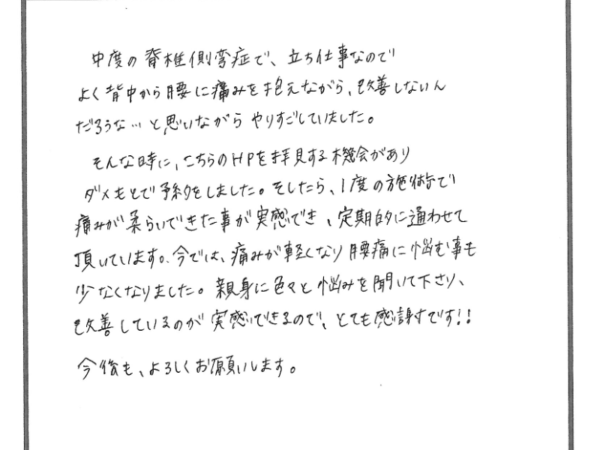 中度の脊椎側弯症で、立ち仕事なので
よく背中から腰に痛みを抱えながら、改善しないん
だろうな…と思いながらやりすごしていました。
そんな時に、こちらのHPを拝見する機会があり
ダメもとで予約をしました。そしたら、1度の施術で
痛みが柔らいできた事が実感でき、定期的に通わせて
頂いています。今では、痛みが軽くなり腰痛に悩む事も
少なくなりました。親身に色々と悩みを聞いて下さり、
改善しているのが実感できるので、とても感謝です!!
今後も、よろしくお願いします。